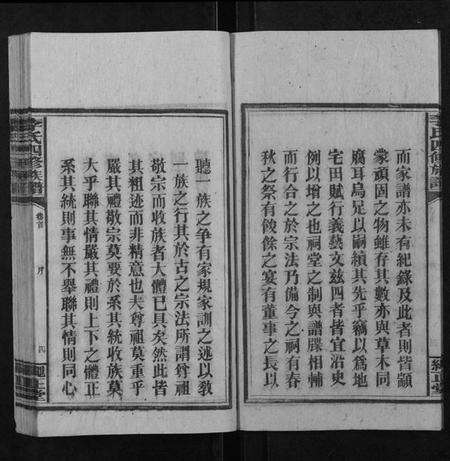 而家譜亦未有紀錄及此者則皆顓
蒙頑固之物雖存其數亦與草木同
腐耳烏足以嗣續其先乎竊以爲地
宅田賦行義藝文茲四者皆宜沿史
例以增之也祠堂之制與譜牒相輔
而行合之於宗法乃備今之祠有春
秋之祭有餕餘之宴有董事之長以
聽一族之争有家規家訓之述以敎
一族之行其於古之宗法所謂尊祖
敬宗而收族者大體已具矣然此皆
其粗迹而非精意也夫尊祖莫重乎
嚴其禮敬宗莫要於系其統收族莫
大乎聯其情嚴其禮則上下之體正
系其統則事無不舉聯其情則同心
李氏四修族譜
卷首
序
四